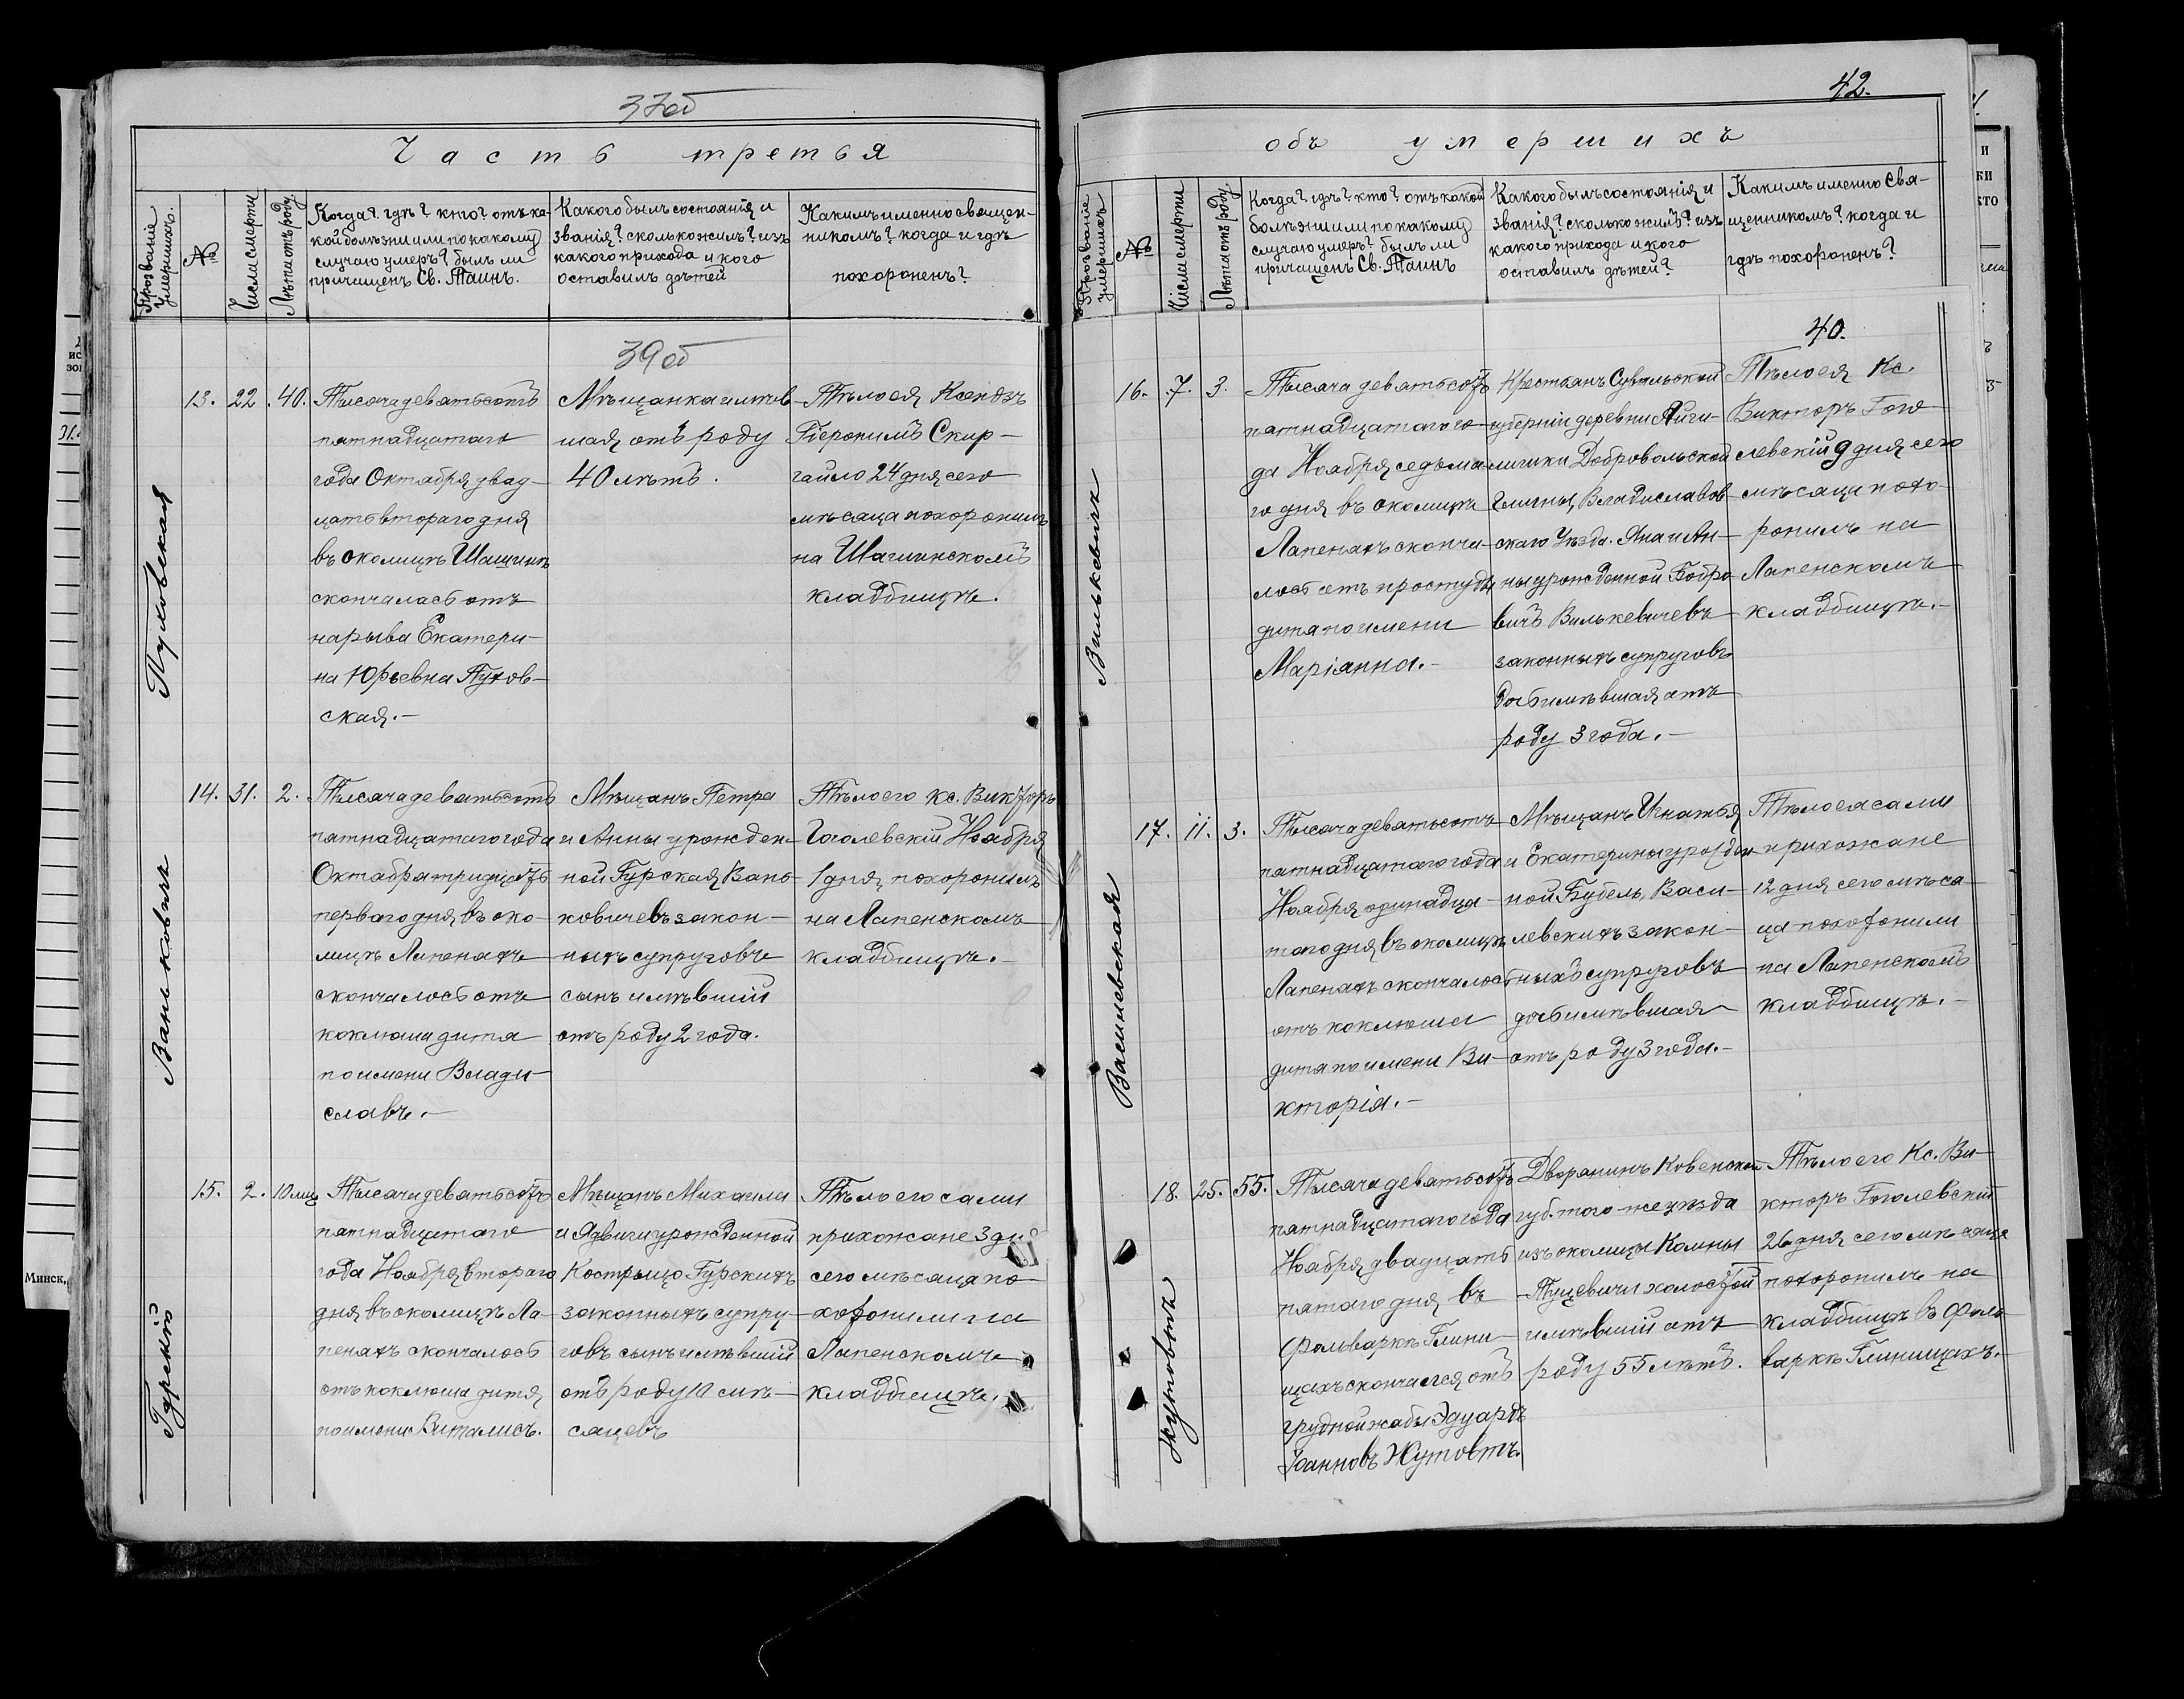 37об
Часть третья
Прозваніе умершихъ.
№
Числа смерти
Лѣта отъ роду.
Когда? гдѣ? кто? отъ ка-
кой болѣзни или по какому
случаю умеръ? былъ ли
причащенъ Св. Таинъ.
Какого былъ состоянія и
званія? сколько жилъ? изъ
какого прихода и кого
оставилъ дѣтей
Какимъ именно священ-
никомъ? когда и гдѣ
похороненъ?
39об
13. 22. 40.
Тысяча девятьсотъ
пятнадцатаго
года Октября двад-
цать втораго дня
въ околицѣ Шашинѣ
скончалась отъ
нарыва Екатери-
на Юрьевна Пухов-
ская.-
Мѣщанка имѣв-
шая отъ роду
40 лѣтъ.
Тѣло ея Ксендзъ
Іеронимъ Скир-
гайло 24 дня сего
мѣсяца похоронилъ
на Шашинскомъ
кладбищѣ.
Ваньковичъ
14. 31. 2.
Тысяча девятьсотъ
пятнадцатаго года
Октября тридцать
перваго дня въ око-
лицѣ Лапенахъ
скончалось отъ
коклюша дитя
по имени Влади-
славъ.-
Мѣщанъ Петра
и Анны урожден-
ной Гурская Вань-
ковичевъ закон-
ныхъ супруговъ
сынъ имѣвшій
отъ роду 2 года.
Тѣло его кс. Викторъ
Гоголевскій Ноября
1 дня похоронилъ
на Лапенскомъ
кладбищѣ.-
Гурскій
15. 2. 10 мѣц
Тысяча девятьсотъ
пятнадцатаго
года Ноября втораго
дня въ околицѣ Ла-
пенахъ скончалось
отъ коклюша дитя
по имени Виталисъ.
Мѣщанъ Михаила
и Ядвиги урожденной
Кострыцо Гурскихъ
законныхъ супру-
говъ сынъ имѣвшій
отъ роду 10 мѣ-
сяцевъ
Тѣло его сами
прихожане 3 дня
сего мѣсяца по-
хоронили на
Лапенскомъ
кладбищѣ.
42.
объ умершихъ
Прозваніе умершихъ
№
Числа смерти
Лѣта отъ роду.
Когда? гдѣ? кто? отъ какой
болѣзни или по какому
случаю умеръ? былъ ли
причащенъ Св. Таинъ
Какого былъ состоянія и
званія? сколько жилъ? изъ
какого прихода и кого
оставилъ дѣтей?
Какимъ именно Свя-
щенникомъ? когда и
гдѣ похороненъ?
40.
Вилькевичъ
16. 7. 3.
Тысяча девятьсотъ
пятнадцатаго го-
да Ноября седьма-
го дня въ околицѣ
Лапенахъ сконча-
лось отъ простуды
дитя по имени
Маріанна.-
Крестьянъ Сувальской
губерніи деревни
Добровольской
Гмины, Владиславов-
скаго Уѣзда. Яна и Ан-
ны урожденной Бобро-
вичъ Вилькевичевъ
законныхъ супруговъ
дочь имѣвшая отъ
роду 3 года.-
Тѣло ея Кс.
Викторъ Гого-
левскій 9 дня сего
мѣсяца похо-
ронилъ на
Лапенскомъ
кладбищѣ.-
Василевская
17. 11. 3.
Тысяча девятьсотъ
пятнадцатаго года
Ноября одинадца-
таго дня въ околицѣ
Лапенахъ скончалось
отъ коклюша
дитя по имени Ви-
кторія.-
Мѣщанъ Игнатья
и Екатерины урожден
ной Бубель, Васи-
левскихъ закон-
ныхъ супруговъ
дочь имѣвшая
отъ роду 3 года.-
Тѣло ея сами
прихожане
12 дня сего мѣся-
ца похоронили
на Лапенскомъ
кладбищѣ.-
Жутовтъ
18. 25. 55.
Тысяча девятьсотъ
пятнадцатаго года
Ноября двадцать
пятаго дня въ
фольваркѣ Глини-
щахъ скончался отъ
грудной жабы Эдуардъ
Іоанновъ Жутовтъ.
Дворянинъ Ковенской
губ. того-же уѣзда
изъ околицы
холостой
имѣвшій отъ
роду 55 лѣтъ.
Тѣло его Кс. Ви-
кторъ Гоголевскій
26 дня сего мѣсяца
похоронилъ на
кладбищѣ въ Фоль-
варкѣ Глинищахъ.-
Минск,